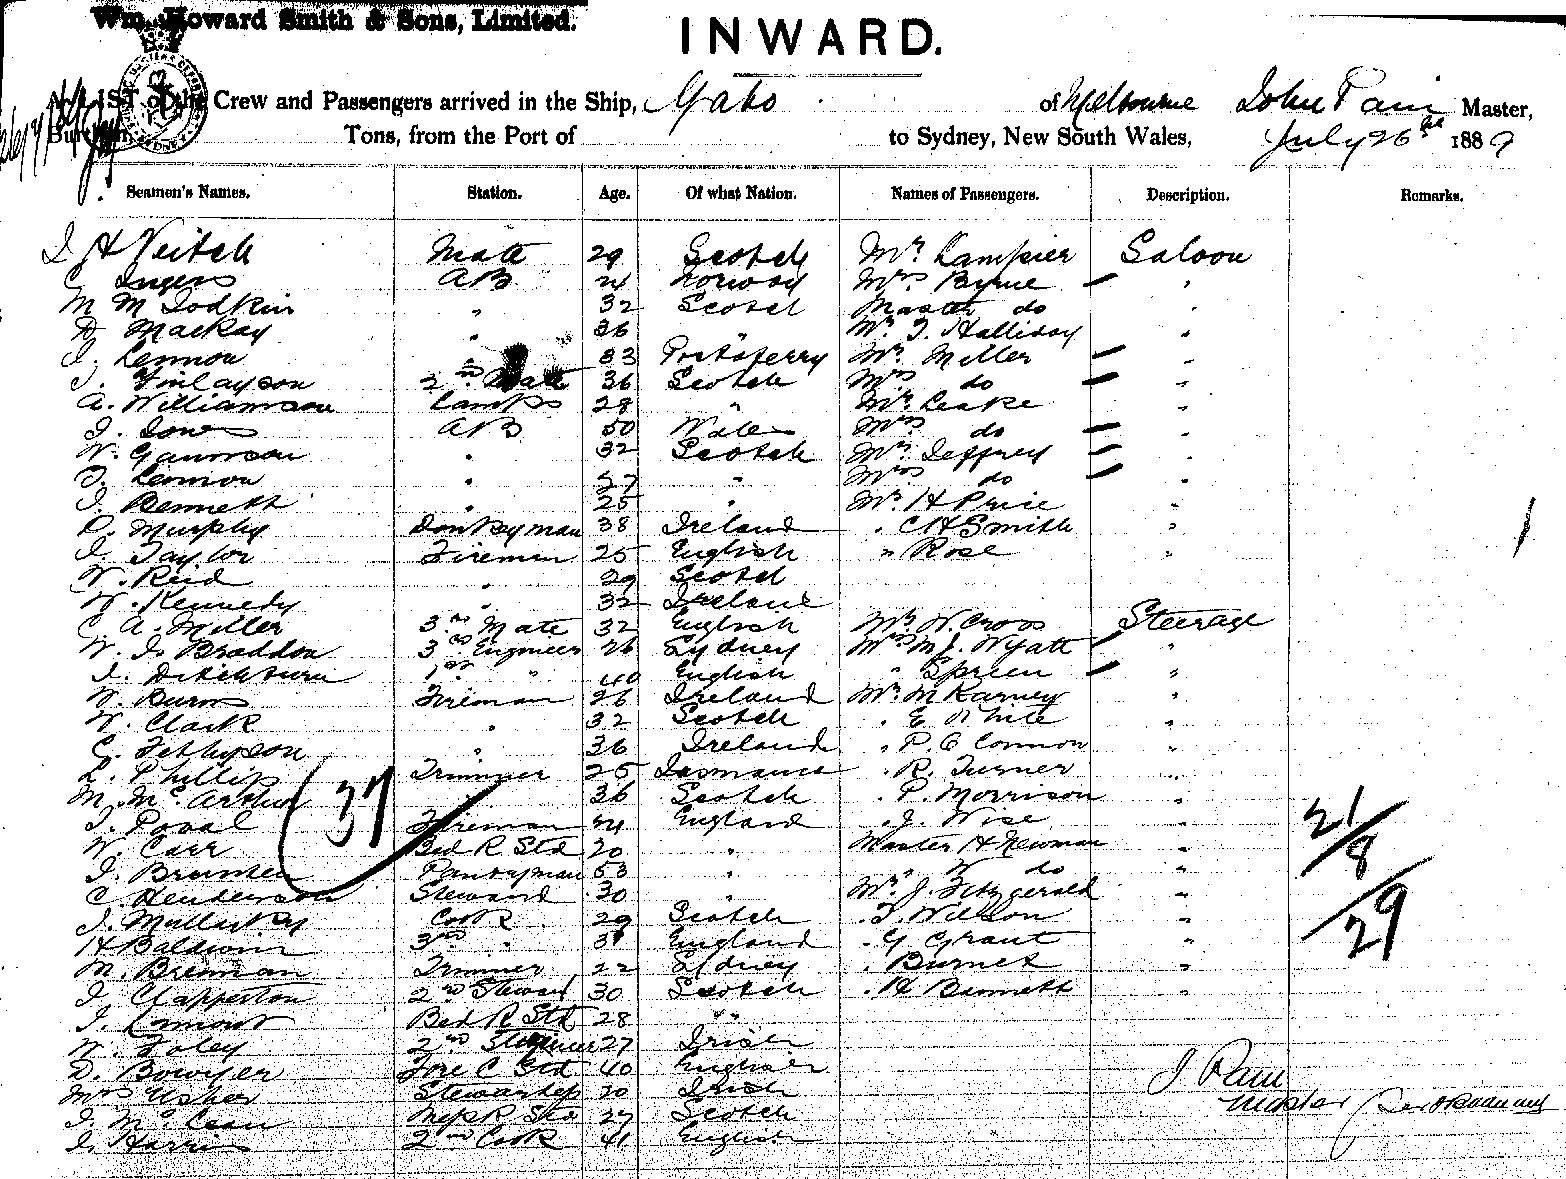 Wm. Howard Smith & Sons, Limited.
INWARD.
LIST of the Crew and Passengers arrived in the Ship, Gabo of Melbourne John Pain Master,
Tons, from the Port of to Sydney, New South Wales, July 26th 1889
Seamen's Names. Station. Age. Of what Nation. Names of Passengers. Description. Remarks.
J H Veitch Mate 29 Scotch Mr Lampier Saloon
C AB 24 Norway Mrs Byrne "
M M Lodkin " 32 Scotch Master do "
D Mackay " 36 " Mr J. Halliday "
J. Lennon " 33 Portaferry Mr. Miller "
J. Finlayson 2nd Mate 36 Scotch Mrs do "
A. Williamson Lamps 28 " Mr. Leake "
J. Jones AB 50 Wales Mrs do "
W. " 32 Scotch Mr Jeffrey "
J. Lennon " 27 " Mrs do "
J. Bennett " 25 " Mr. H Price "
P. Murphy Donkeyman 38 Ireland " C H Smith "
J. Taylor Firemen 25 English " Rose "
W. Reid " 29 Scotch
W. Kennedy " 32 Ireland
C A. Miller 3rd Mate 32 English Mr W. Cross Steerage
W. J. Braddon 3rd Engineer 26 Sydney Mrs M. J. Wyatt "
J. Ditchburn 1st " 40 English " Spreen "
W. Burns Fireman 26 Ireland Mr. M Karney "
W. Clark " 32 Scotch " E White "
C. " 36 Ireland " P. O Connor "
L. Phillips Trimmer 25 Tasmania " R. Turner "
M. McArthur " 36 Scotch " P. Morrison "
J. Poval Fireman 24 England " J. Wise "
W. Carr Bed R Std 20 " Master H Newman "
J. Pantryman 53 " " W do "
C Henderson Steward 30 " Mr. J. Fitzgerald "
J. Cook 29 Scotch " T. Wilson "
H Baldwin 3rd " England " G Grant "
M. Brennan Trimmer 22 Sydney " Burnet "
J. Clapperton 2nd Steward 30 Scotch " H Bennett "
J. Lamont Bed R Std 28 " "
W. Foley 2nd 27 Irish
D. Bowyer Fore C Std 40 English
Mrs Usher Stewardess 30 Irish
J. McLean Mess R Std 27 Scotch
J. Harris 2nd Cook 41 English
37
21/8
/29
J Pain
Master